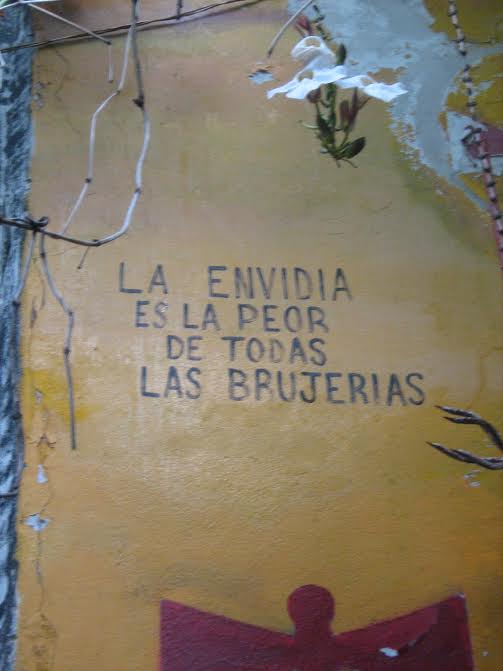 LA ENVIDIA
ES LA PEOR
DE TODAS
LAS BRUJERIAS